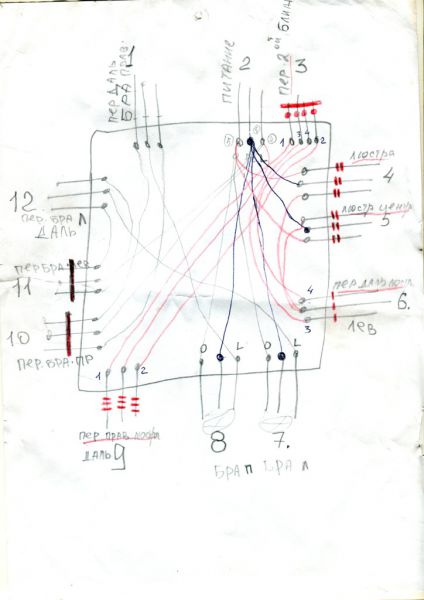 пер. даль.
БРА прав.
1
ПИТАНИЕ
2
пер. 2ой Ближ
3
1 3 4 2
люстра
4
люстр центр
5
12
пер. бра л
даль
пер бра лев
11
10
пер. бра. пр
4
3
6.
лев
1 2
O L O L
9
даль
8
7.
БРА П БРА Л